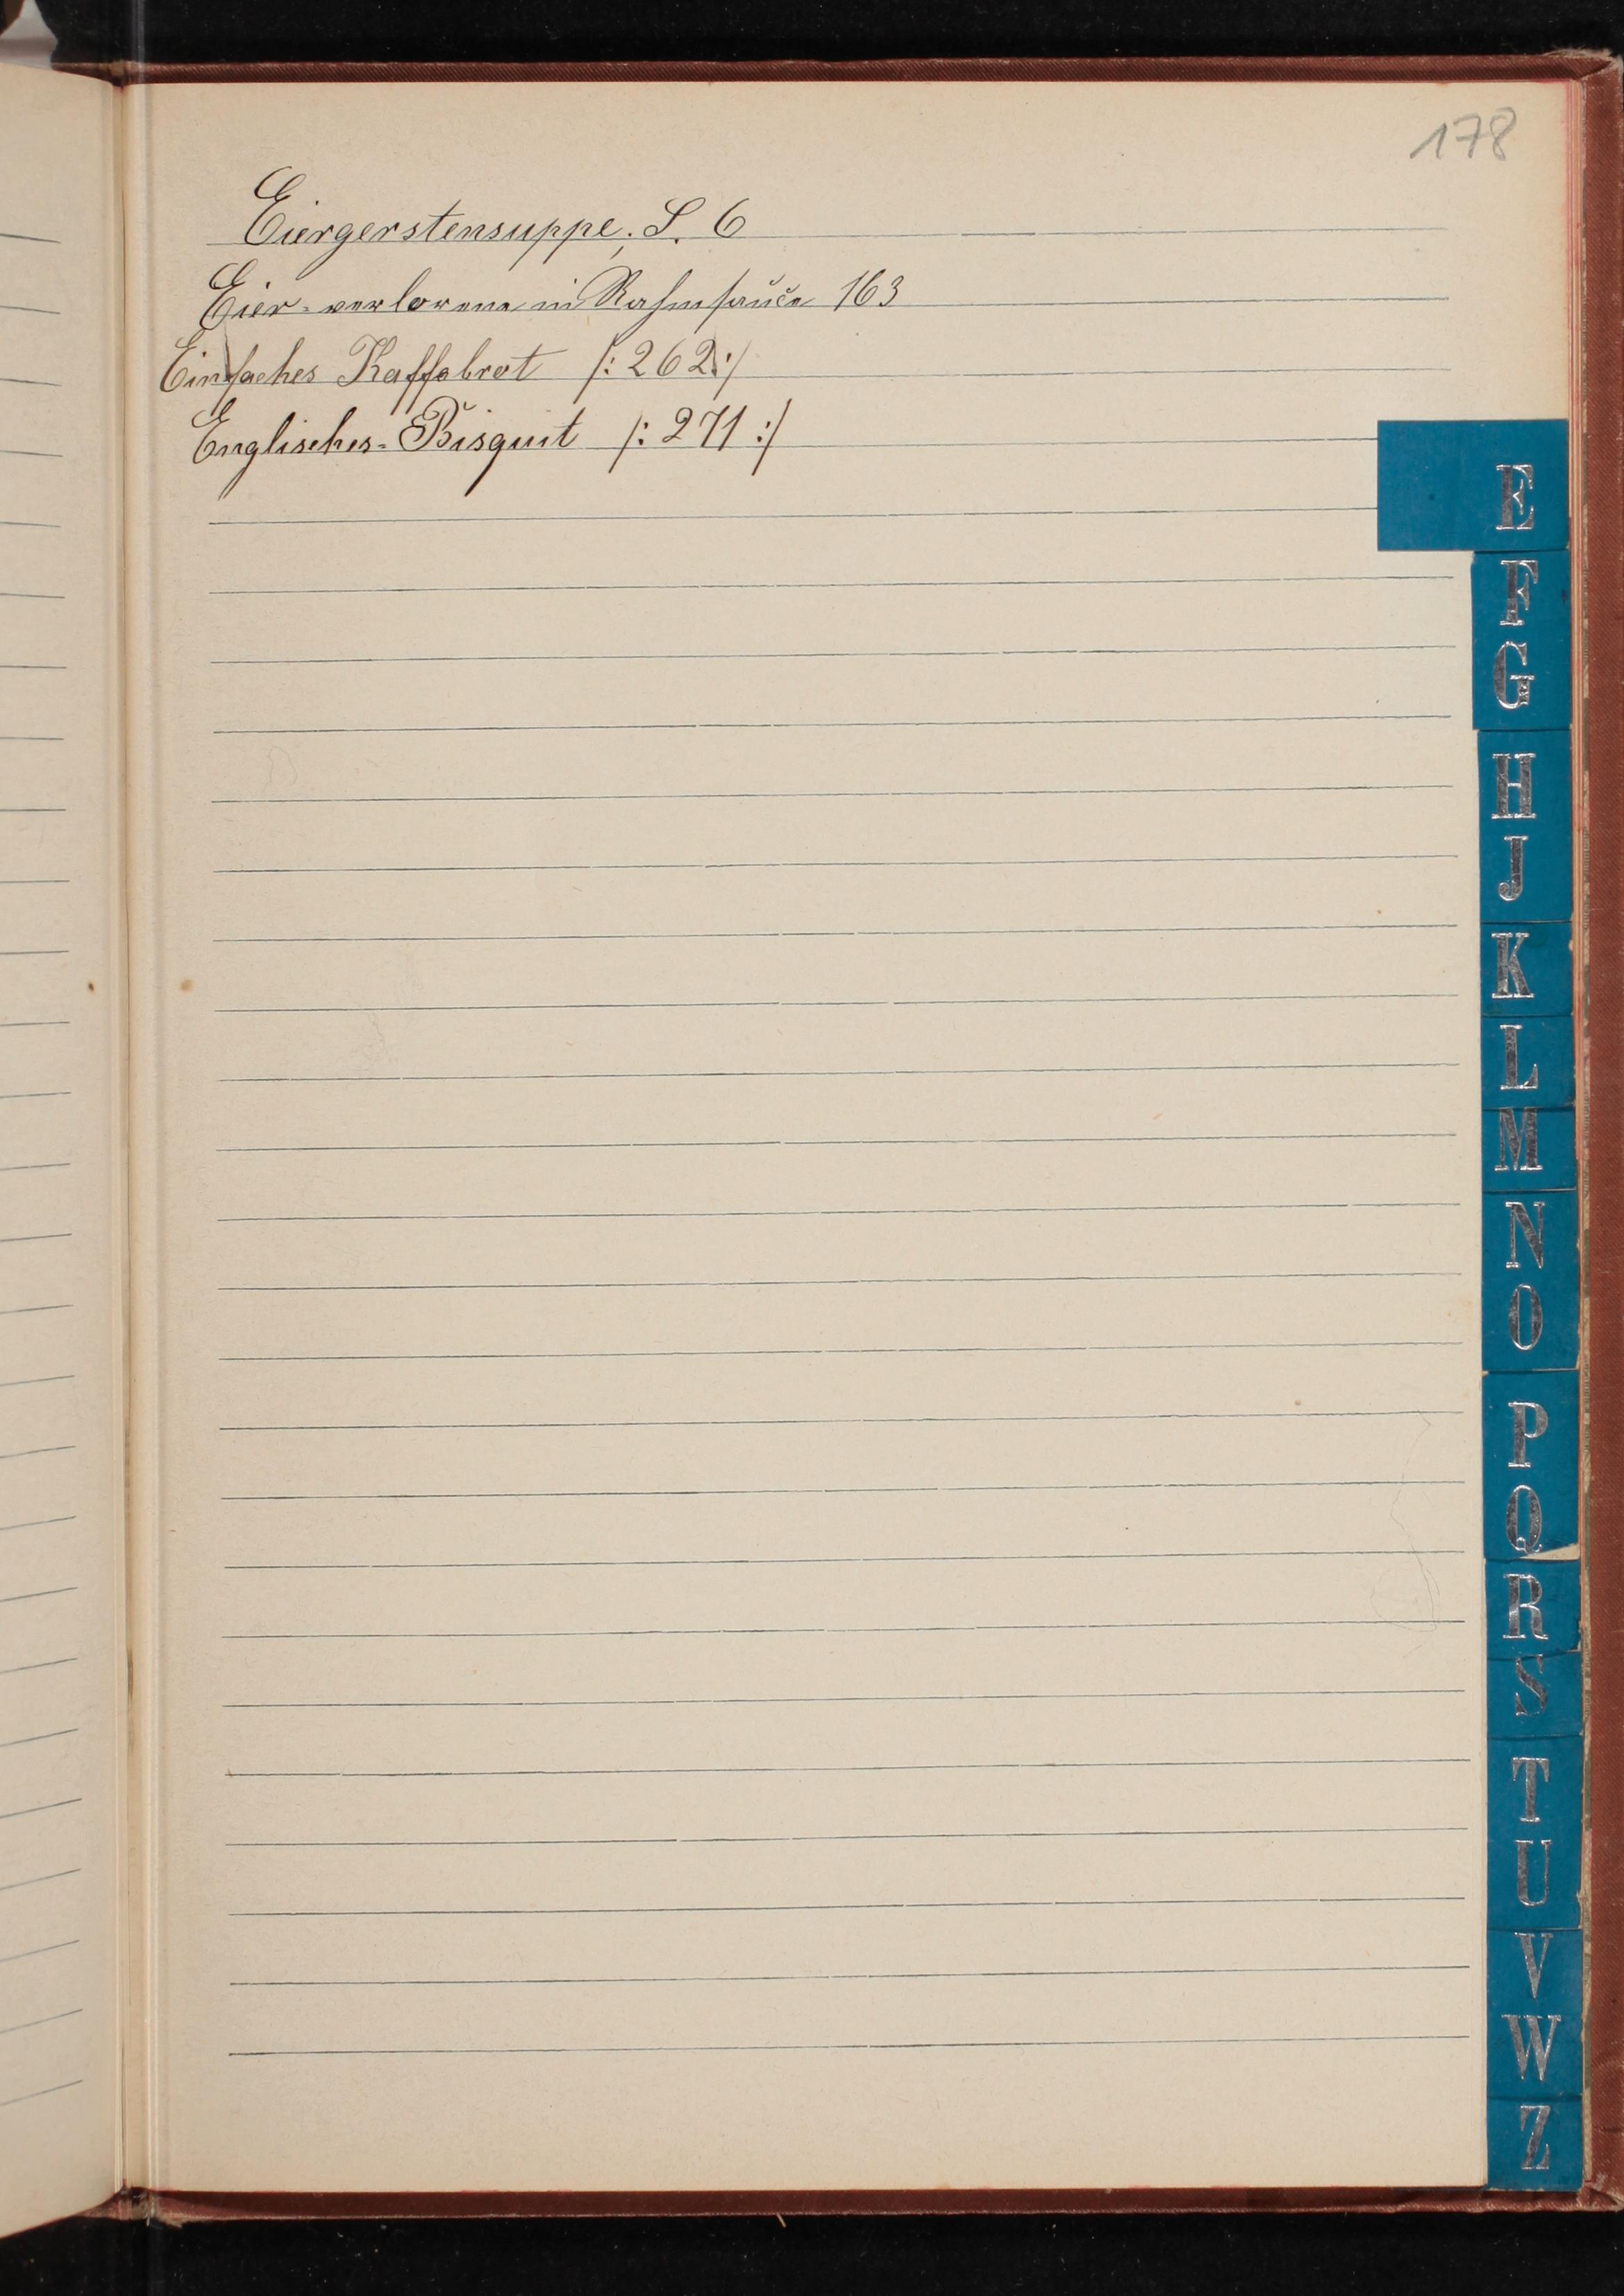 178
Eiergerstensuppe; S. 6
Eier-verlorene in Rahmsauce 163
Einfaches Kaffebrot /: 262 :/
Englisches-Bisquit /: 271 :/
E
F
G
H
J
K
L
M
N
O
P
Q
R
S
T
U
V
W
Z